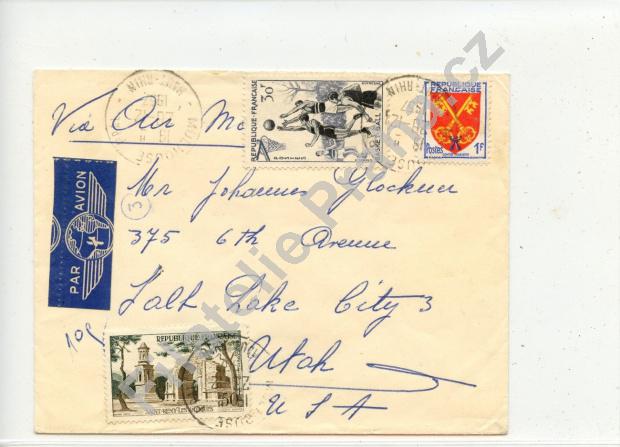 Via Air
REPUBLIQUE-FRANÇAISE
30F
BASKET-BALL
REPUBLIQUE
FRANÇAISE
Postes
1F
HAUT-RHIN
PAR AVION
3
Mr Johannes Glockner
375 6th Avenue
Salt Lake City 3
Utah
USA
10g
REPUBLIQUE FRANÇAISE
50F
SAINT-REMY-LES-ANTIQUES
Filatelie Praha.cz